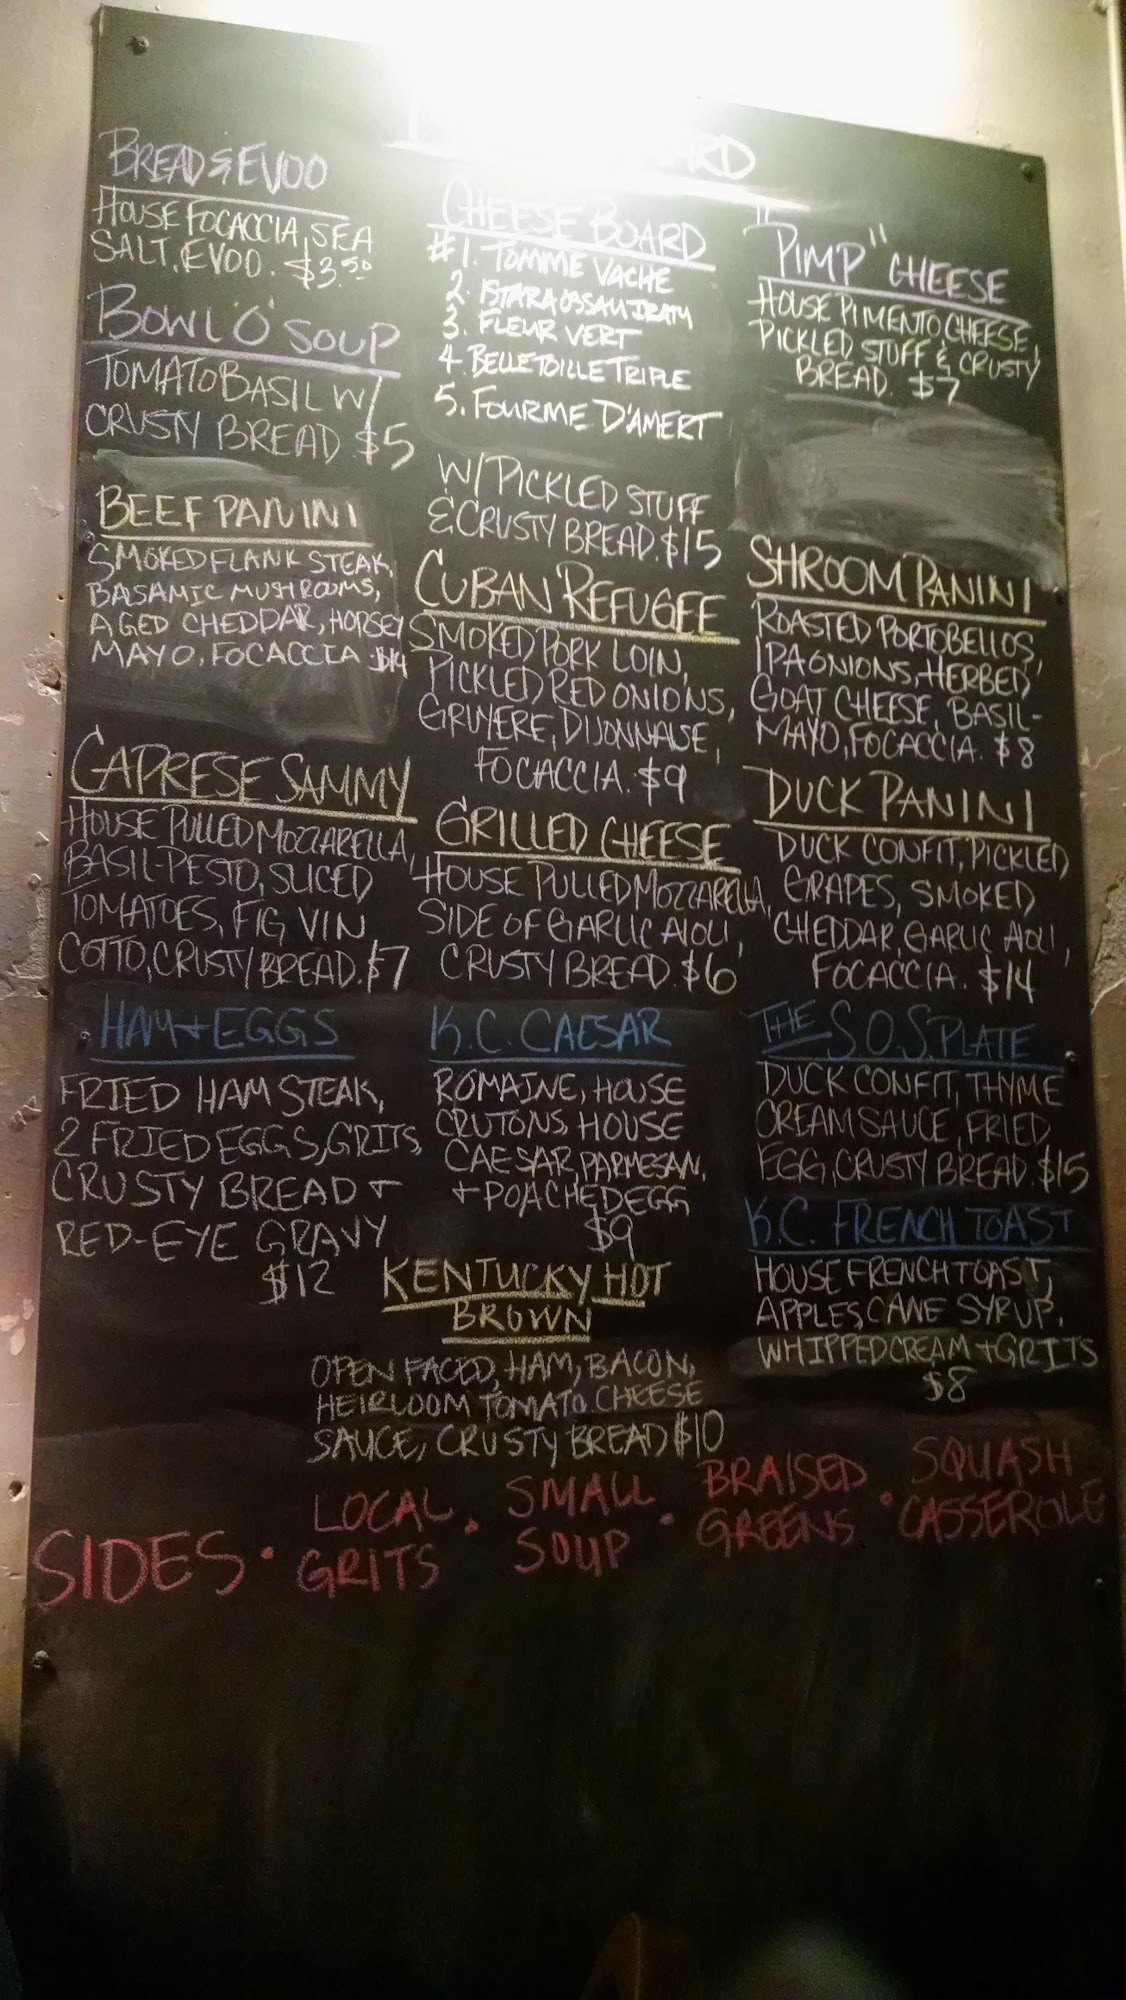 BREAD & EVOO
HOUSE FOCACCIA, SEA
SALT, EVOO. $3.50
BOWL 'O' SOUP
TOMATO BASIL W/
CRUSTY BREAD $5
BEEF PANINI
SMOKED FLANK STEAK,
BASAMIC MUSHROOMS,
AGED CHEDDAR, HORSEY
MAYO, FOCACCIA $14
CAPRESE SAMMY
HOUSE PULLED MOZZARELLA,
BASIL-PESTO, SLICED
TOMATOES, FIG VIN
COTTO, CRUSTY BREAD. $7
HAM + EGGS
FRIED HAM STEAK,
2 FRIED EGGS, GRITS,
CRUSTY BREAD +
RED-EYE GRAVY
$12
CHEESE BOARD
#1. TOMME VACHE
2. ISTARA OSSAU IRATY
3. FLEUR VERT
4. BELLETOILLE TRIPLE
5. FOURME D'AMERT
W/ PICKLED STUFF
& CRUSTY BREAD. $15
CUBAN REFUGEE
SMOKED PORK LOIN,
PICKLED RED ONIONS,
GRUYERE, DIJONNAISE,
FOCACCIA. $9
GRILLED CHEESE
HOUSE PULLED MOZZARELLA,
SIDE OF GARLIC AIOLI,
CRUSTY BREAD. $6
K.C. CAESAR
ROMAINE, HOUSE
CRUTONS, HOUSE
CAESAR, PARMESAN,
+ POACHED EGG
$9
"PIMP" CHEESE
HOUSE PIMENTO CHEESE,
PICKLED STUFF & CRUSTY
BREAD. $7
SHROOM PANINI
ROASTED PORTOBELLOS,
IPA ONIONS, HERBED
GOAT CHEESE, BASIL-
MAYO, FOCACCIA. $8
DUCK PANINI
DUCK CONFIT, PICKLED
GRAPES, SMOKED
CHEDDAR, GARLIC AIOLI,
FOCACCIA. $14
THE S.O.S. PLATE
DUCK CONFIT, THYME
CREAM SAUCE, FRIED
EGG, CRUSTY BREAD. $15
K.C. FRENCH TOAST
HOUSE FRENCH TOAST,
APPLES, CANE SYRUP.
WHIPPED CREAM + GRITS
$8
KENTUCKY HOT
BROWN
OPEN FACED, HAM, BACON,
HEIRLOOM TOMATO. CHEESE
SAUCE, CRUSTY BREAD $10
SIDES • LOCAL GRITS • SMALL SOUP • BRAISED GREENS • SQUASH CASSEROLE